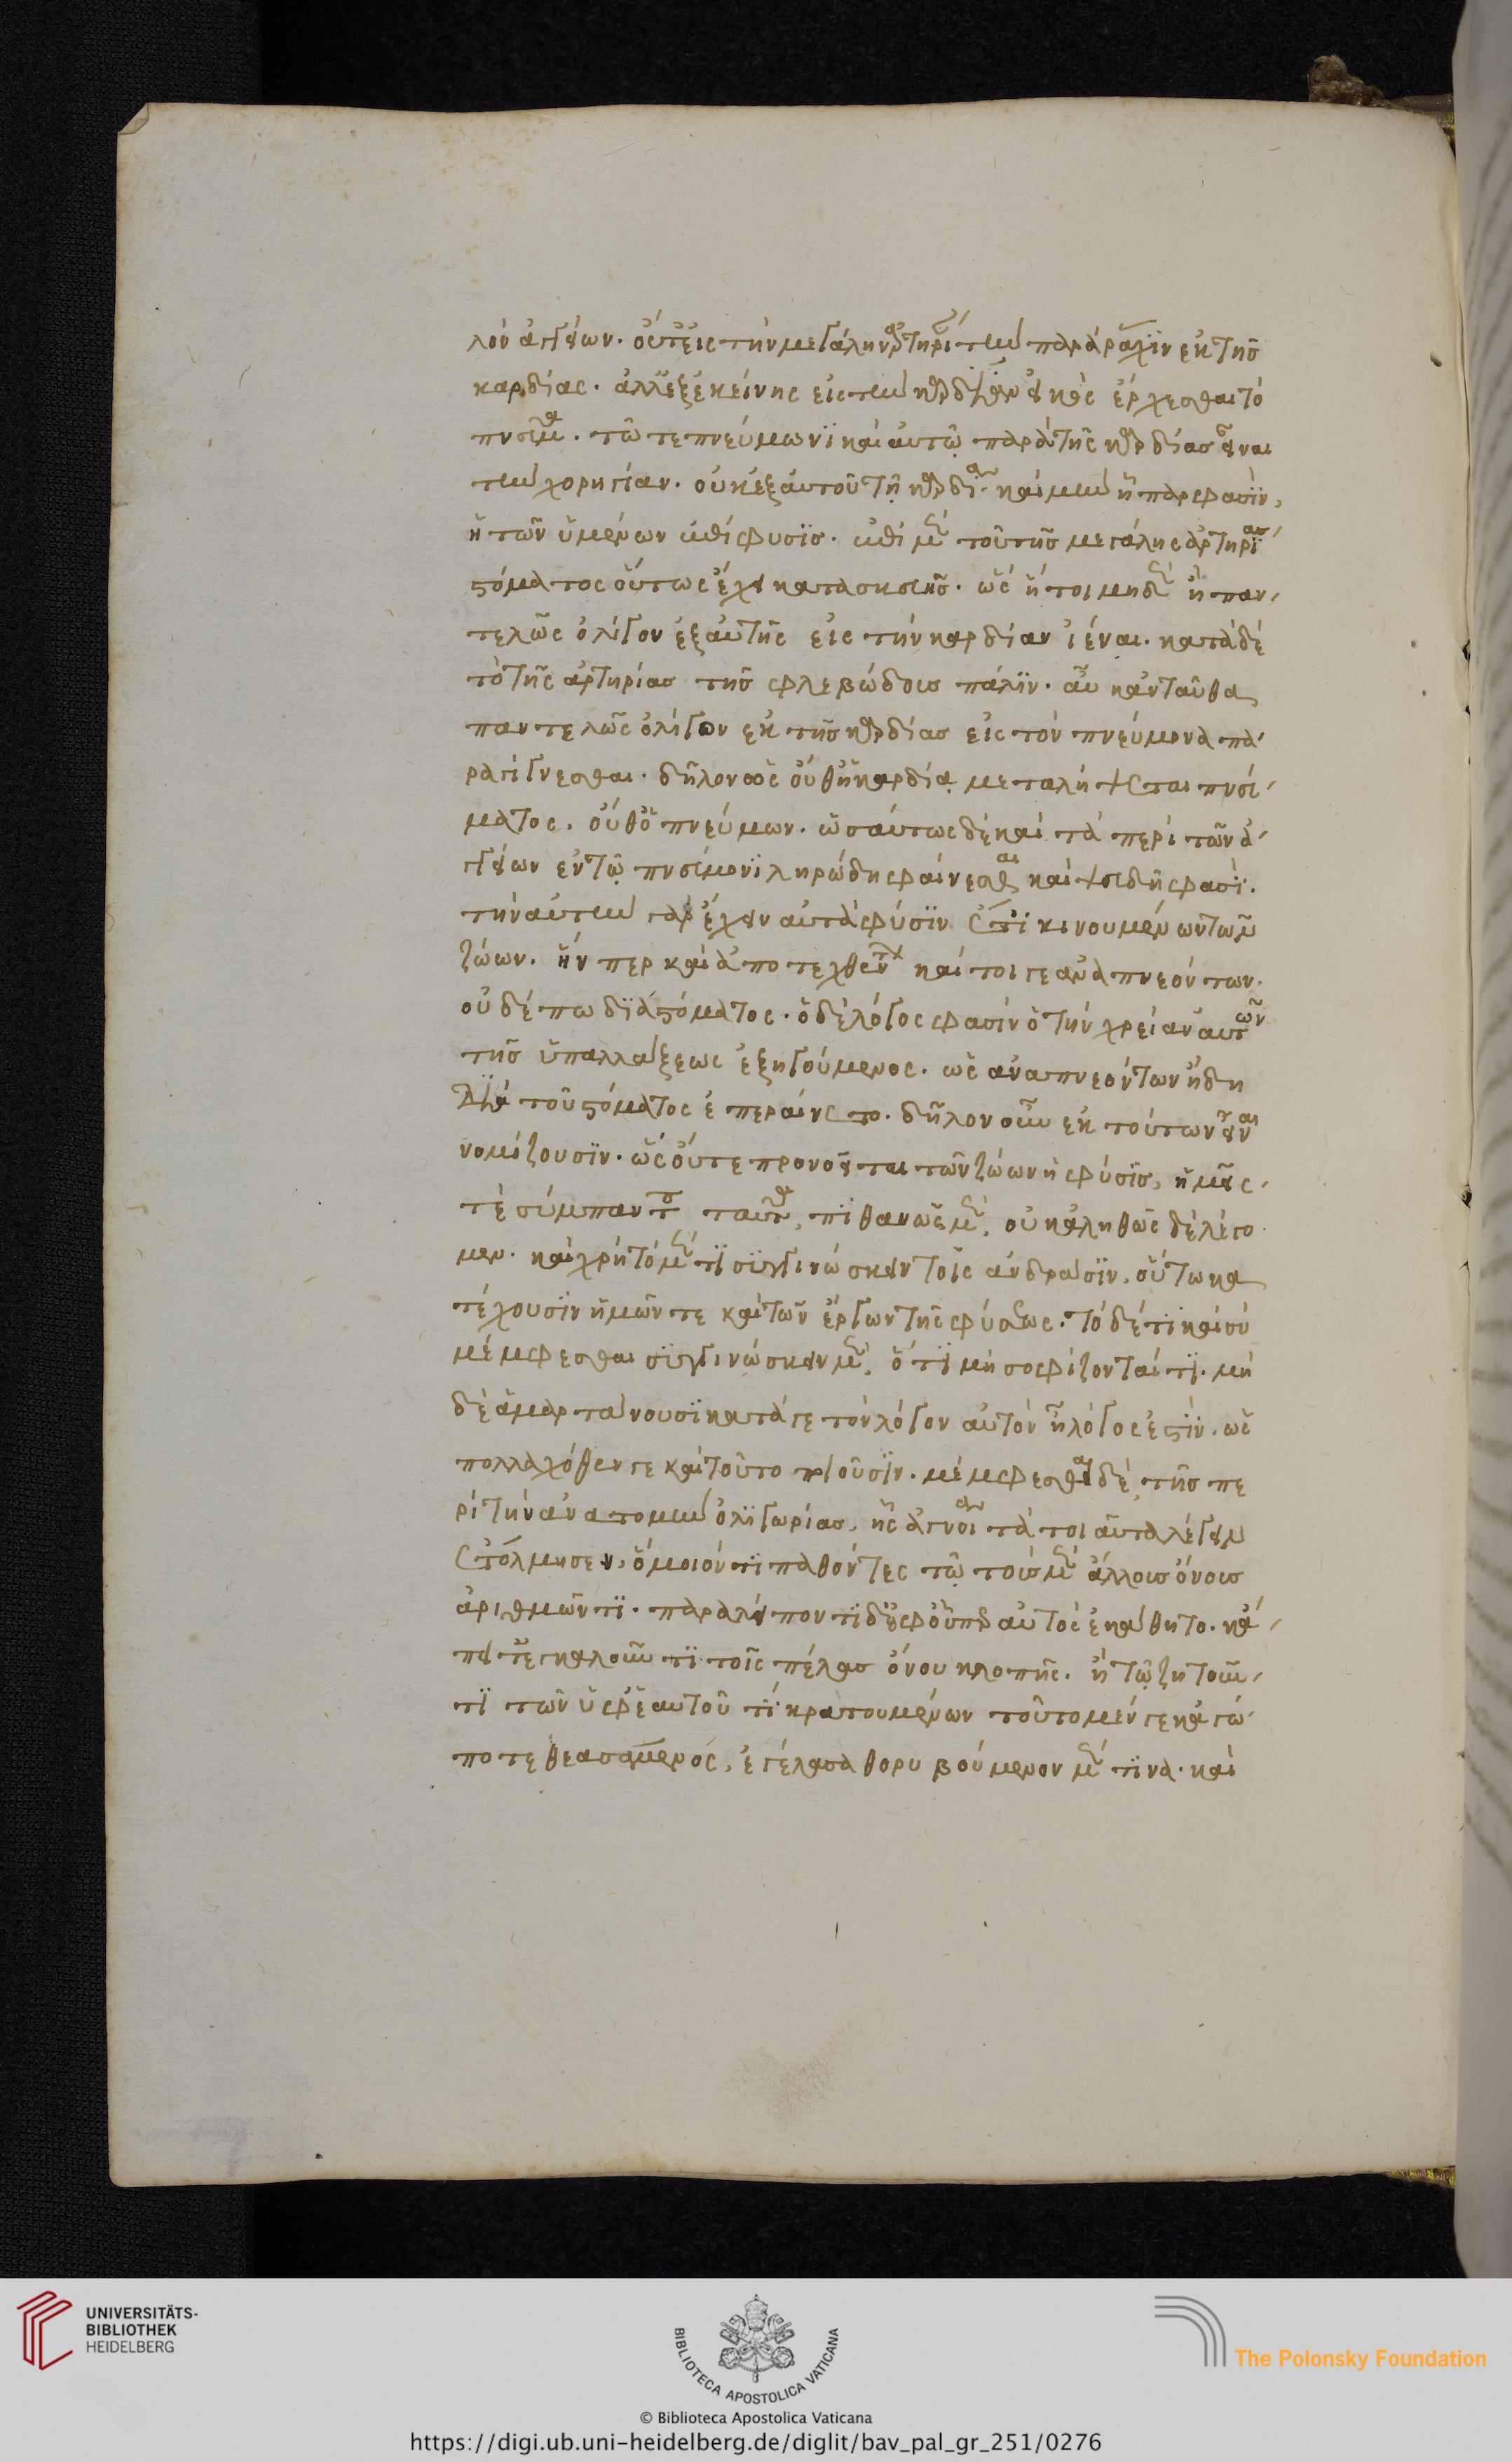 λὸν ἀγγείων. οὔτ' εἰς τὴν μεγάλην ἀρτηρίαν τὴν παρὰ ῥάχιν ἐκ τῆς
καρδίας. ἀλλ' ἐξ ἐκείνης εἰς τὴν καρδίαν εἰκὸς ἔρχεσθαι τὸ
πνεῦμα. τῶ τε πνεύμωνϊ καὶ αὐτῷ παρὰ τῆς καρδίας εἶναι
τὴν χορηγίαν. οὐκ ἐξ αὐτοῦ τῇ καρδίᾳ. καὶ μὴν ἥ παρ
ἡ τῶν ὑμένων ἐπίφυσϊς. ἐπὶ μὲν τοῦ τῆς μεγάλης ἀρτηρίας
στόματος οὕτως ἔχει κατασκευῆς. ὡς ἤτοι μηδὲν ἢ παν
τελῶς ὀλίγον ἐξ αὐτῆς εἰς τὴν καρδίαν ἰέναι. κατὰ δὲ
τὸ τῆς ἀρτηρίας τῆς φλεβώδους πάλϊν. αὖ κἀνταῦθα
παντελῶς ὀλίγον ἐκ τῆς καρδίας εἰς τὸν πνεύμονα πα
ραγίγνεσθαι. δῆλον ὡς οὔθ' ἡ καρδία μεταλήψεται πνεύ
ματος. οὔθ' ὁ πνεύμων. ὡσαύτως δὲ καὶ τὰ περὶ τῶν ἀγ
γείων ἐν τῷ πνεύμονϊ ληρώδη φαίνεσθαι καὶ ψευδῆ φασϊ.
τὴν αὐτὴν γὰρ ἔχειν αὐτὰ φύσϊν ἔτϊ κινουμένων τῶν
ζώων. ἥν περ καὶ ἀποτεχθέντα καί τοι γε ἀναπνεόντων.
οὐδέπω δϊὰ στόματος. ὁ δὲ λόγος φασὶν ὁ τὴν χρείαν αὐτῶν
τῆς ὑπαλλάξεως ἐξηγούμενος. ὡς ἀναπνεόντων ἤδη
δϊὰ τοῦ στόματος ἐπεραίνετο. δῆλον οὖν ἐκ τούτων εἶναι
νομίζουσϊν. ὡς οὔτε προνοεῖται τῶν ζώων ἡ φύσϊς, ἡμεῖς
τὲ σύμπαντα ταῦτα, πϊθανῶς μὲν, οὐκ ἀληθῶς δὲ λέγο
μεν. καὶ χρὴ τὸ μέν τϊ συγγινώσκειν τοῖς ἀνδράσϊν, οὕτω κα
τέχουσϊν ἡμῶν τε καὶ τῶν ἔργων τῆς φύσεως. τὸ δέ τϊ καὶ οὐ
μέμφεσθαι συγγινώσκειν μὲν, ὅτϊ μὴ σοφίζονταί τϊ. μη
δὲ ἁμαρτάνουσϊ κατά γε τὸν λόγον αὐτὸν ᾗ λόγος ἐστίν. ὡς
πολλαχόθεν γε καὶ τοῦτο ποιοῦσϊν. μέμφεσθαι δὲ, τῆς πε
ρὶ τὴν ἀνατομὴν ὀλϊγωρίας, ἧς ἀγνοίᾳ τά τοι αῦτα λέγειν
ἐτόλμησεν, ὅμοιόν τϊ παθόντες τῷ τοὺς μὲν ἄλλους ὄνους
ἀριθμοῦντϊ. παραλείποντϊ δὲ ἐφ' οὗπερ αὐτὸς ἐκάθητο. κἄ
πειτ' ἐγκαλοῦντϊ τοῖς πέλας ὄνου κλοπῆς. ἢ τῷ ζητοῦν
τϊ τῶν ὑφ' ἑαυτοῦ τϊ κρατουμένων τοῦτο μέν γε κἀγώ
ποτε θεασάμενος, ἐγέλασα θορυβούμενον μέν τϊνα. καὶ
UNIVERSITÄTS-
BIBLIOTHEK
HEIDELBERG
BIBLIOTECA APOSTOLICA VATICANA
The Polonsky Foundation
© Biblioteca Apostolica Vaticana
https://digi.ub.uni-heidelberg.de/diglit/bav_pal_gr_251/0276